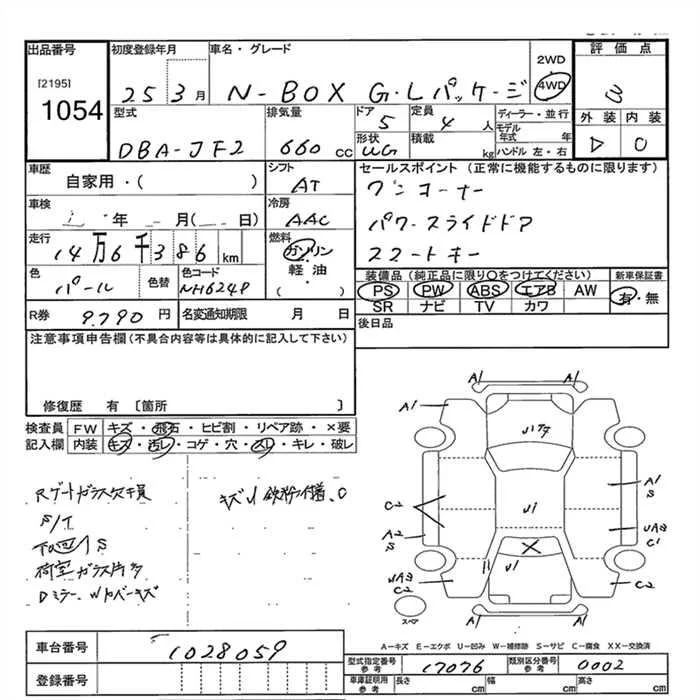 出品番号 初度登録年月 車名・グレード 評価点
[2195]
1054
25 3月 N-BOX G・Lパッケージ 2WD 4WD 3
型式 排気量 ドア 定員 ディーラー・並行 外装 内装
DBA-JF2 660 CC 5 4 人 モデル年式 年 D C
形状 積載 ハンドル 左・右
UG kg
車歴 シフト セールスポイント (正常に機能するものに限ります)
自家用・( ) AT ワンオーナー
車検 冷房
年 月( 日) AAC パワースライドドア
走行 燃料
14万6千386 km ガソリン・軽油 ( ) スマートキー
色 色替 色コード 装備品 (純正品に限り○をつけてください) 新車保証書
パール NH624P PS PW ABS エアB AW 有・無
SR ナビ TV カワ
R券 9.790 円 名変通知期限 月 日 後日品
注意事項申告欄 (不具合内容等は具体的に記入して下さい)
修復歴 有 〔箇所 〕
検査員 FW キズ・飛石・ヒビ割・リペア跡・×要
記入欄 内装 キズ・汚レ・コゲ・穴・スレ・キレ・破レ
Rゲートガラス欠品
キズU 鉄粉付着.C
S/T
S
荷室ガラス
Dミラー.Wカバーキズ
A1 A1
A1
U1アタ
A1
S
C2 U1
A2
S
UA3
C1
U1
UA3
C2
C2
スペア
A-キズ E-エクボ U-凹み W-補修跡 S-サビ C-腐食 XX-交換済
車台番号 1028059
登録番号
型式指定番号 参考 17076 類別区分番号 参考 0002
車庫証明用 参考 長さ cm 幅 cm 高さ cm